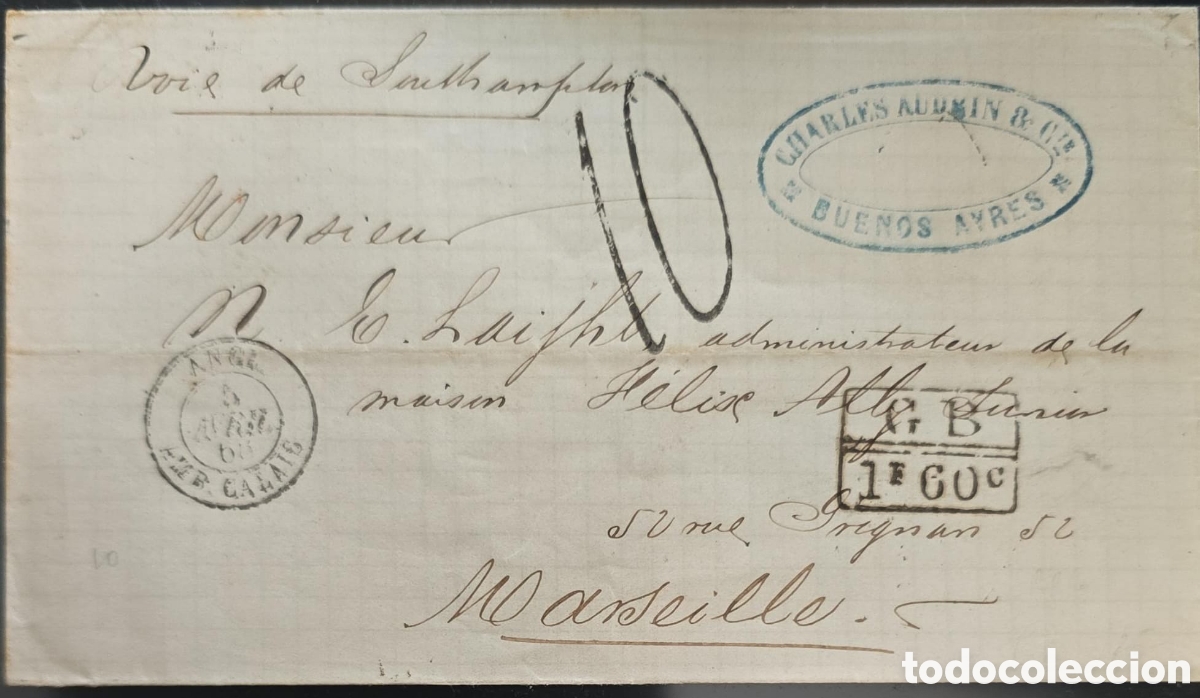 Voie de Southampton
10
CHARLES AUDRIN & Cie
BUENOS AYRES
Monsieur
E. Laight administrateur de la
maison Félix Junior
ANGL.
AVRIL
AMB. CALAIS
G B
1F 60c
52 rue Grignan 52
Marseille.
todocoleccion